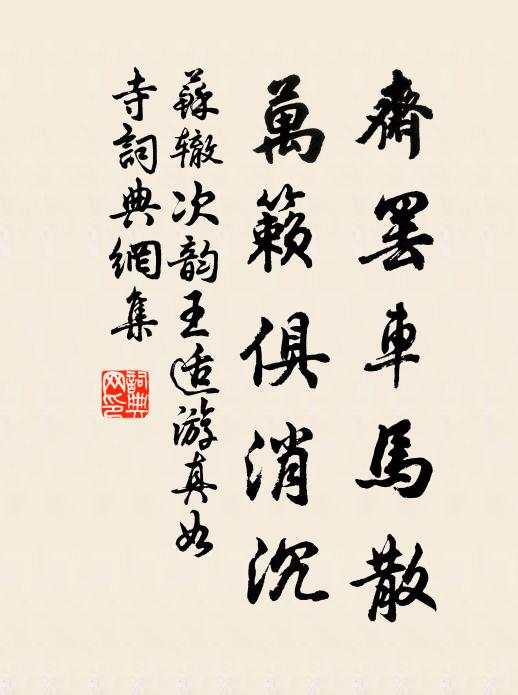 齋罷車馬散
萬籟俱消沉
蘇辙次韵王适游真如
寺詞典網集
詞典
网印